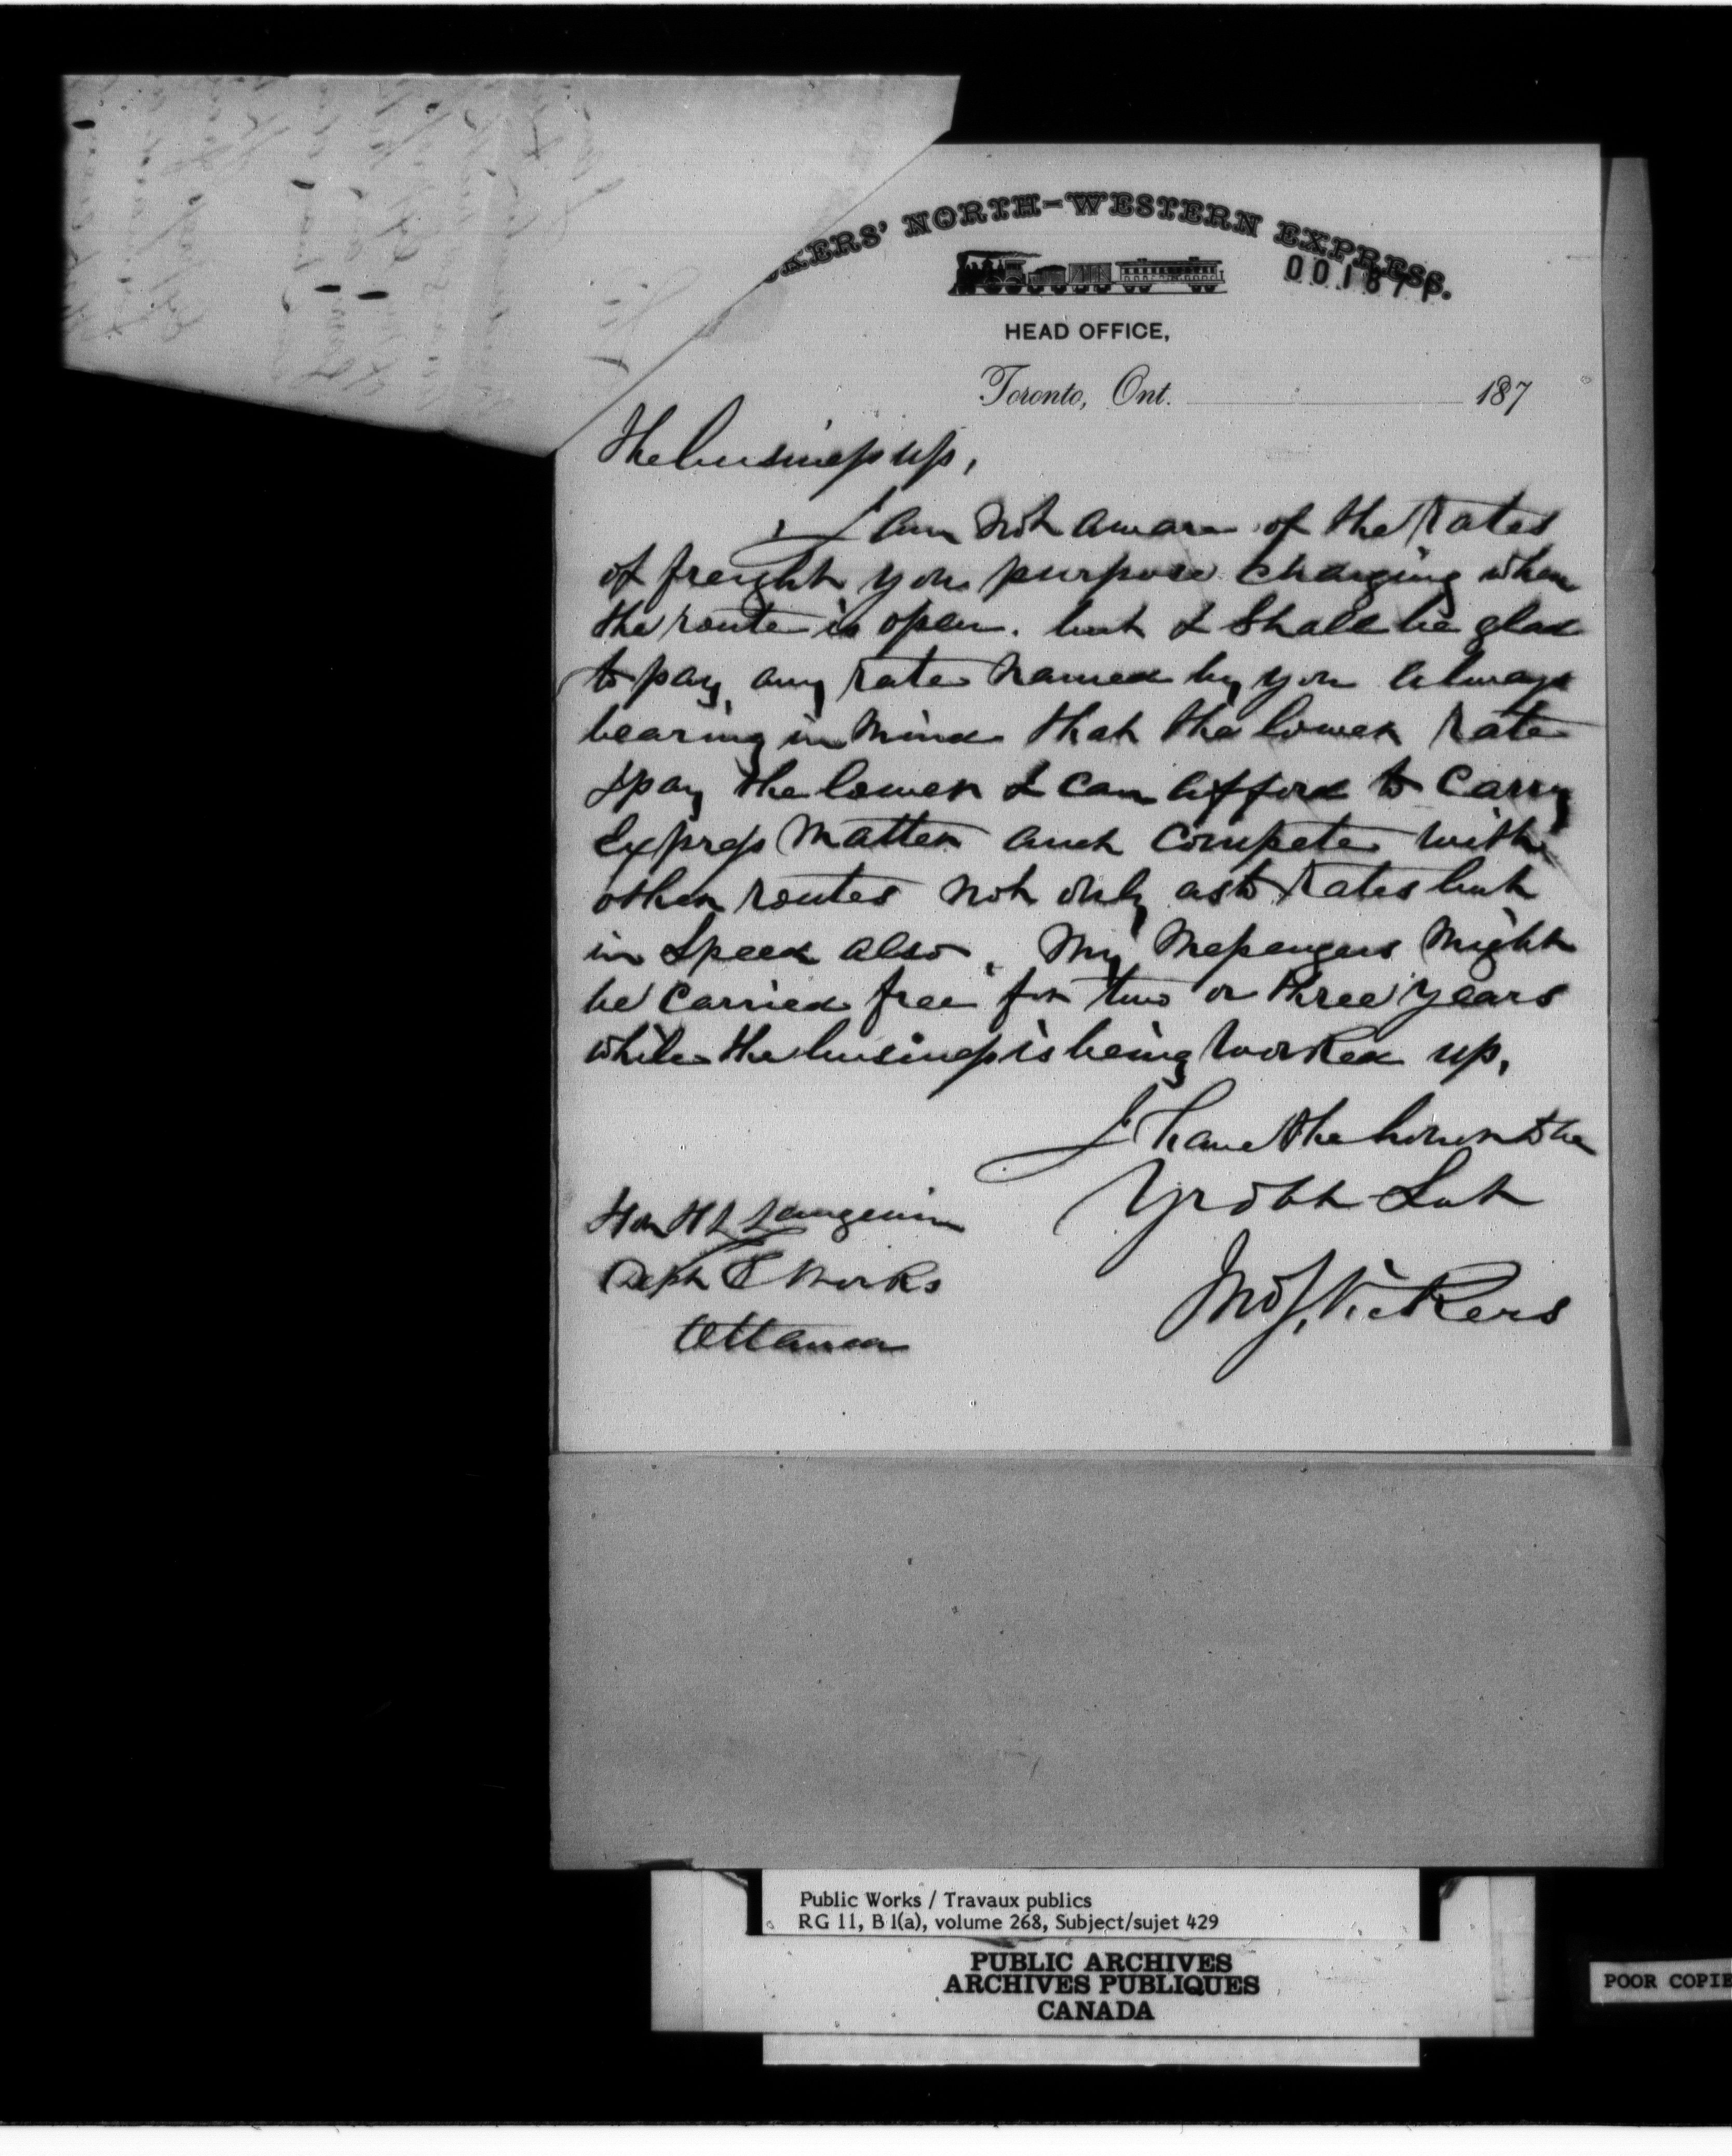 KERS' NORTH-WESTERN EXPRESS.
HEAD OFFICE,
Toronto, Ont. 187
the business up,
I am not aware of the rates
of freight you purpose charging when
the route is open. but I shall be glad
to pay any rate named by you always
bearing in mind that the lower rate
I pay the lower I can afford to carry
Express matter and compete with
other routes not only as to rates but
in speed also. My Messengers might
be carried free for two or three years
while the business is being worked up,
I have the honor to be
Yr obt Svt
Jno J. Vickers
Hon H L Langevin
Dept P Works
Ottawa
Public Works / Travaux publics
RG 11, B 1(a), volume 268, Subject/sujet 429
PUBLIC ARCHIVES
ARCHIVES PUBLIQUES
CANADA
POOR COPIE